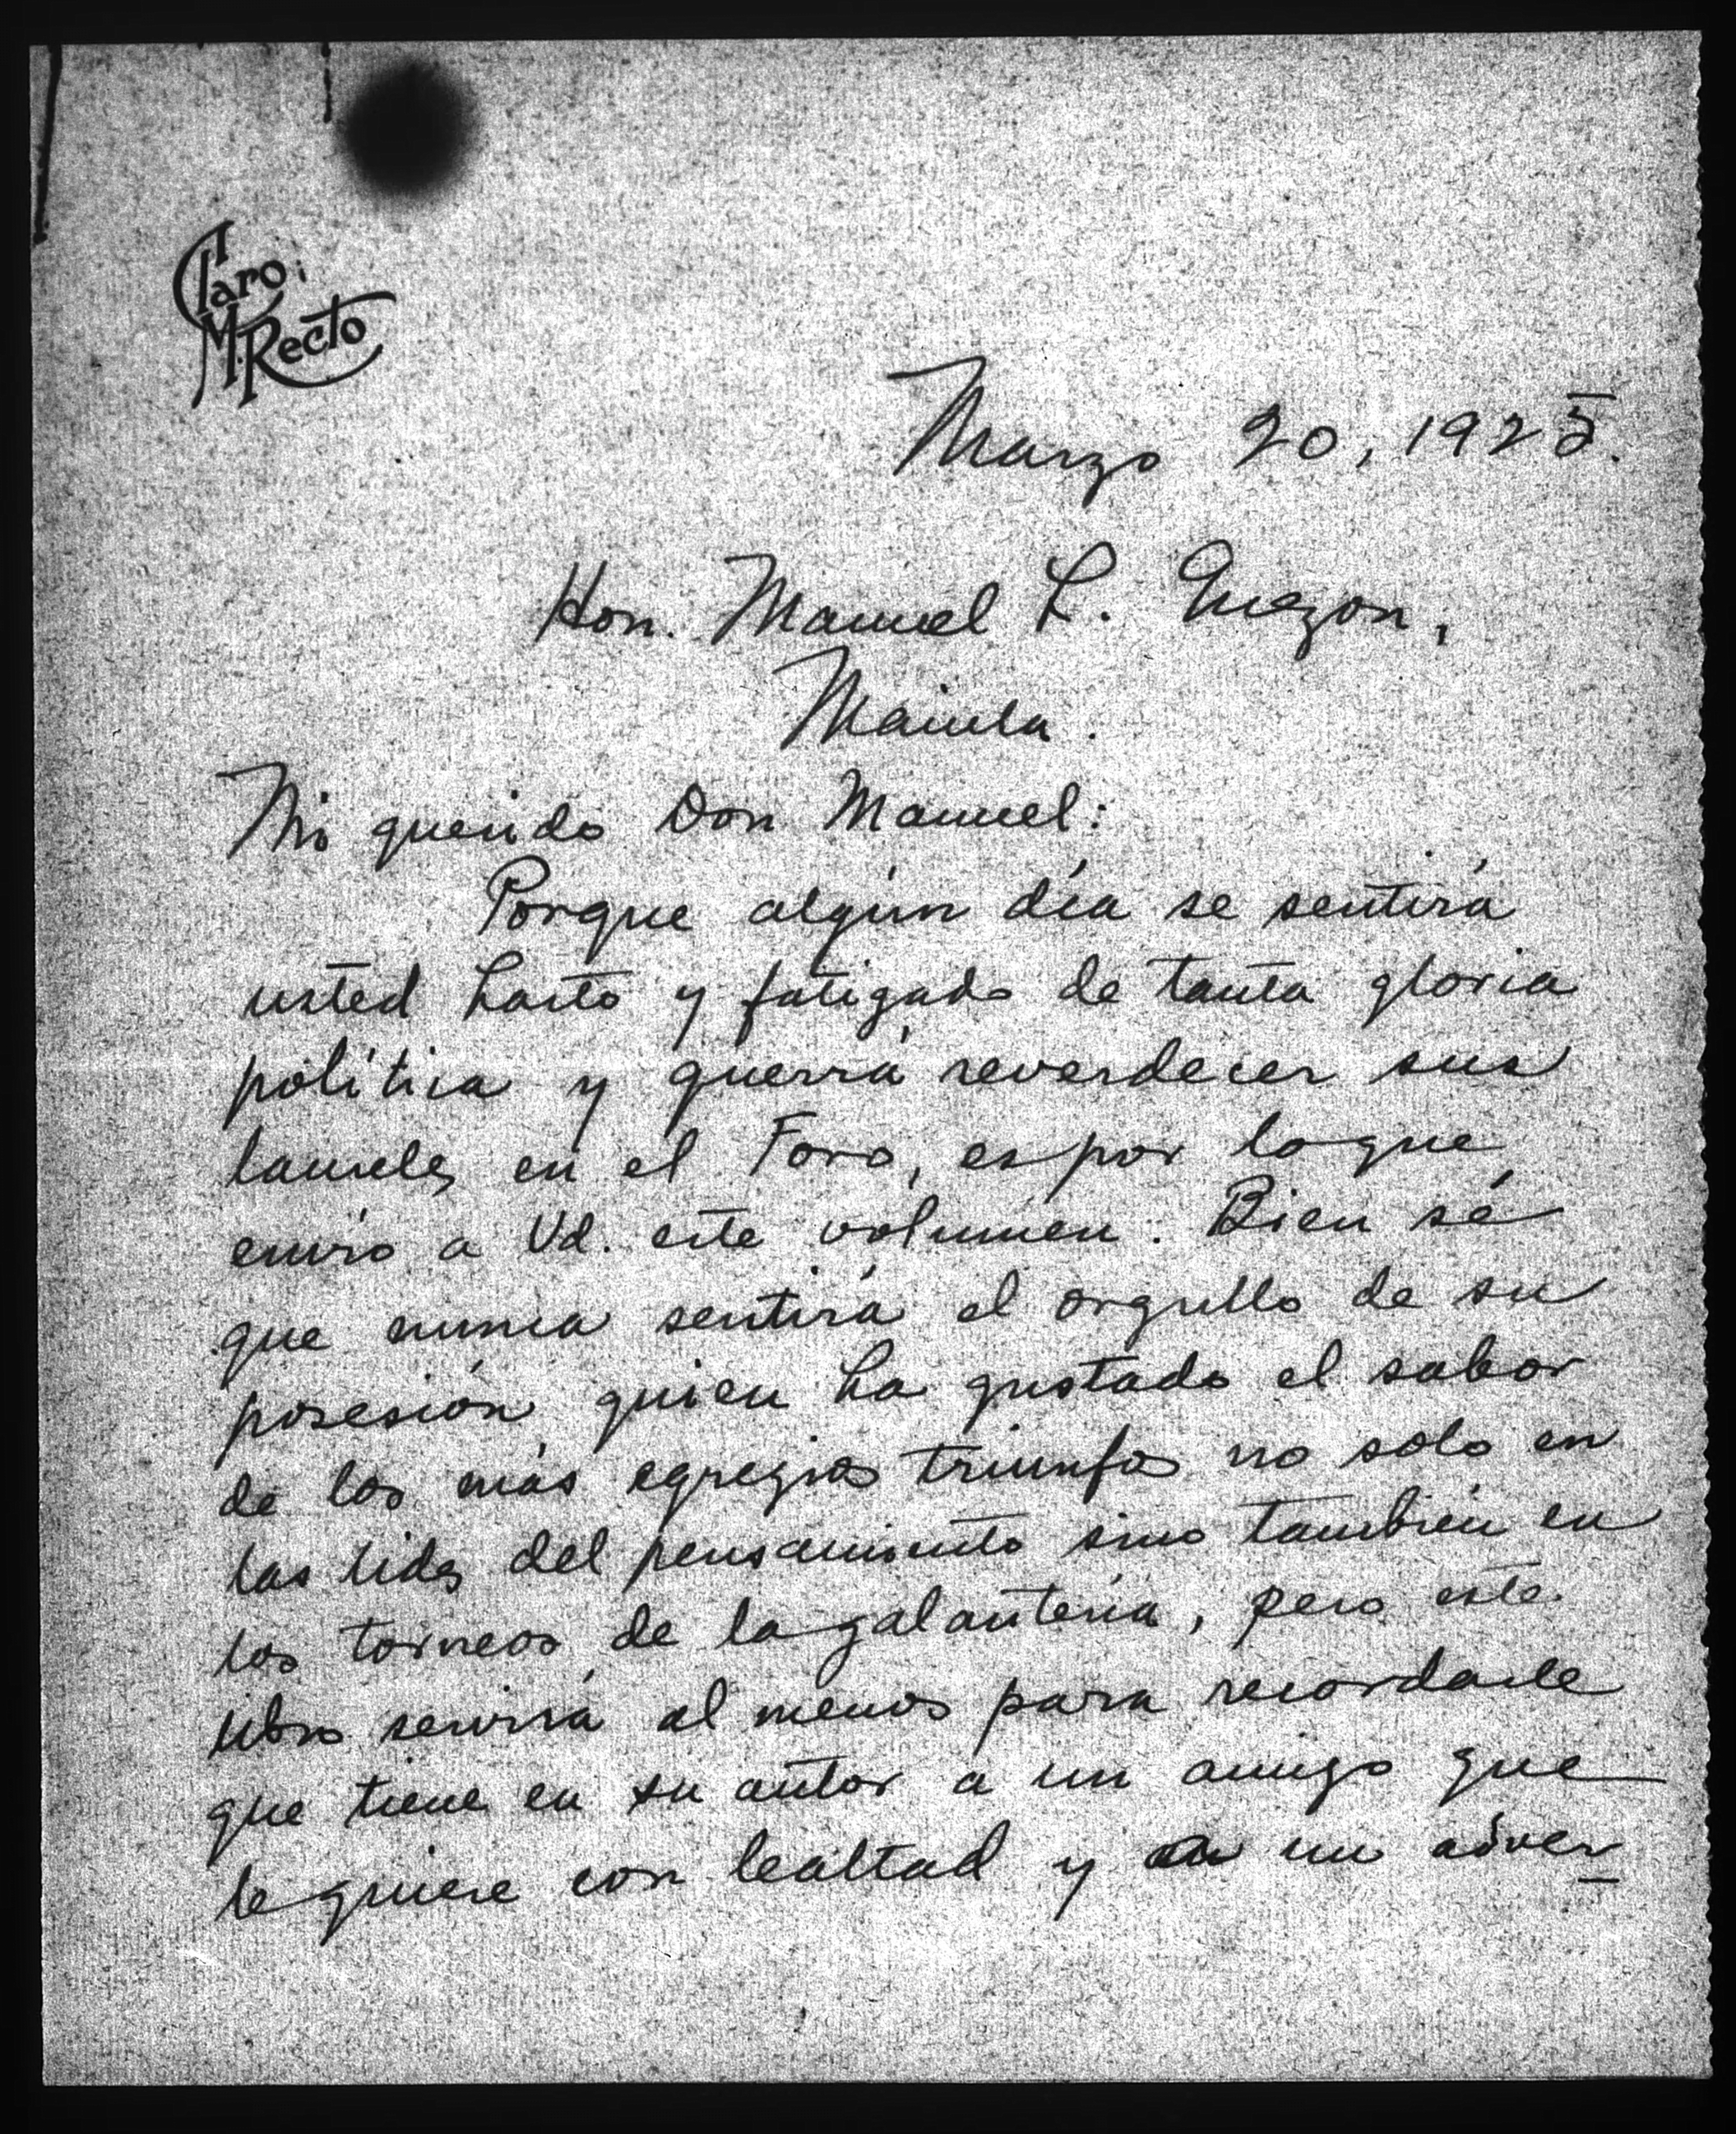 Claro
M. Recto
Marzo 20, 1925.
Hon. Manuel L. Quezon,
Manila.
Mi querido Don Manuel:
Porque algún día se sentirá
usted harto y fatigado de tanta gloria
política y querrá reverdecer sus
laureles en el Foro, es por lo que
envío a Vd. este volumen. Bien sé
que nunca sentirá el orgullo de su
posesión quien ha gustado el sabor
de los más egregios triunfos no solo en
las lides del pensamiento sino también en
los torneos de la galantería, pero este
libro servirá al menos para recordarle
que tiene en su autor a un amigo que
le quiere con lealtad y a un adver-